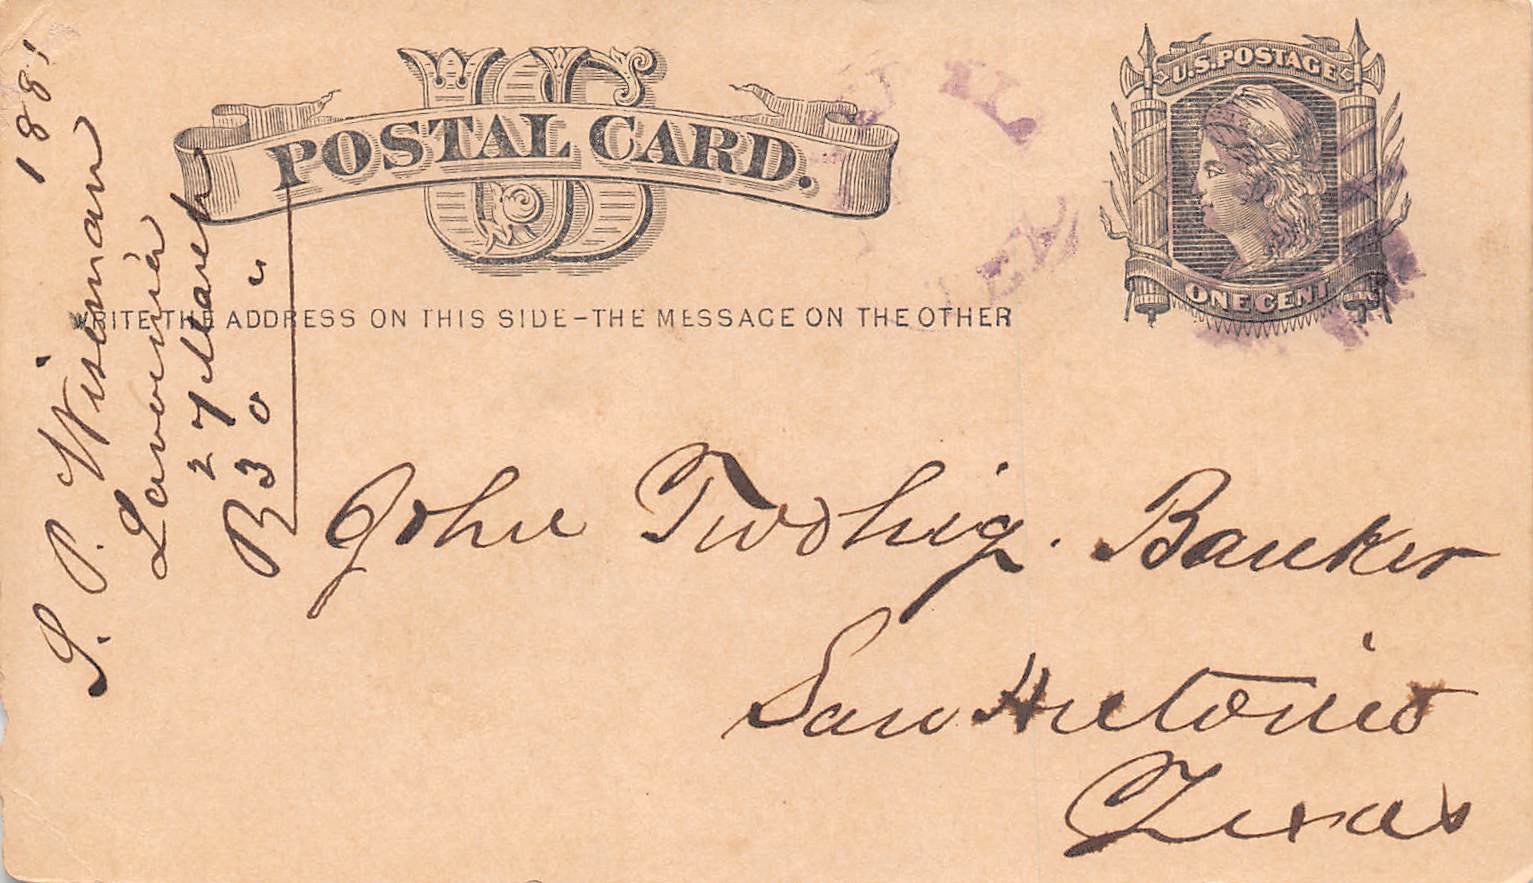 US
POSTAL CARD.
WRITE THE ADDRESS ON THIS SIDE-THE MESSAGE ON THE OTHER
U.S. POSTAGE
ONE CENT
TEX
John Twohig. Banker
San Antonio
Texas
1881
S. P. Wiseman
Lavernia
27 March
R 30 "